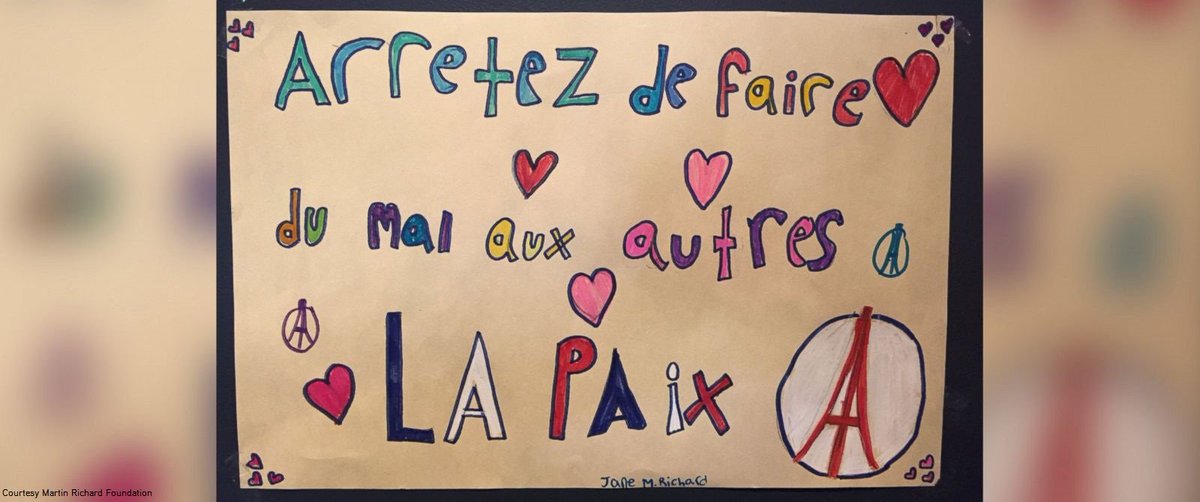 Arretez de faire
du mal aux autres
LA PAix
Jane M. Richard
Courtesy Martin Richard Foundation